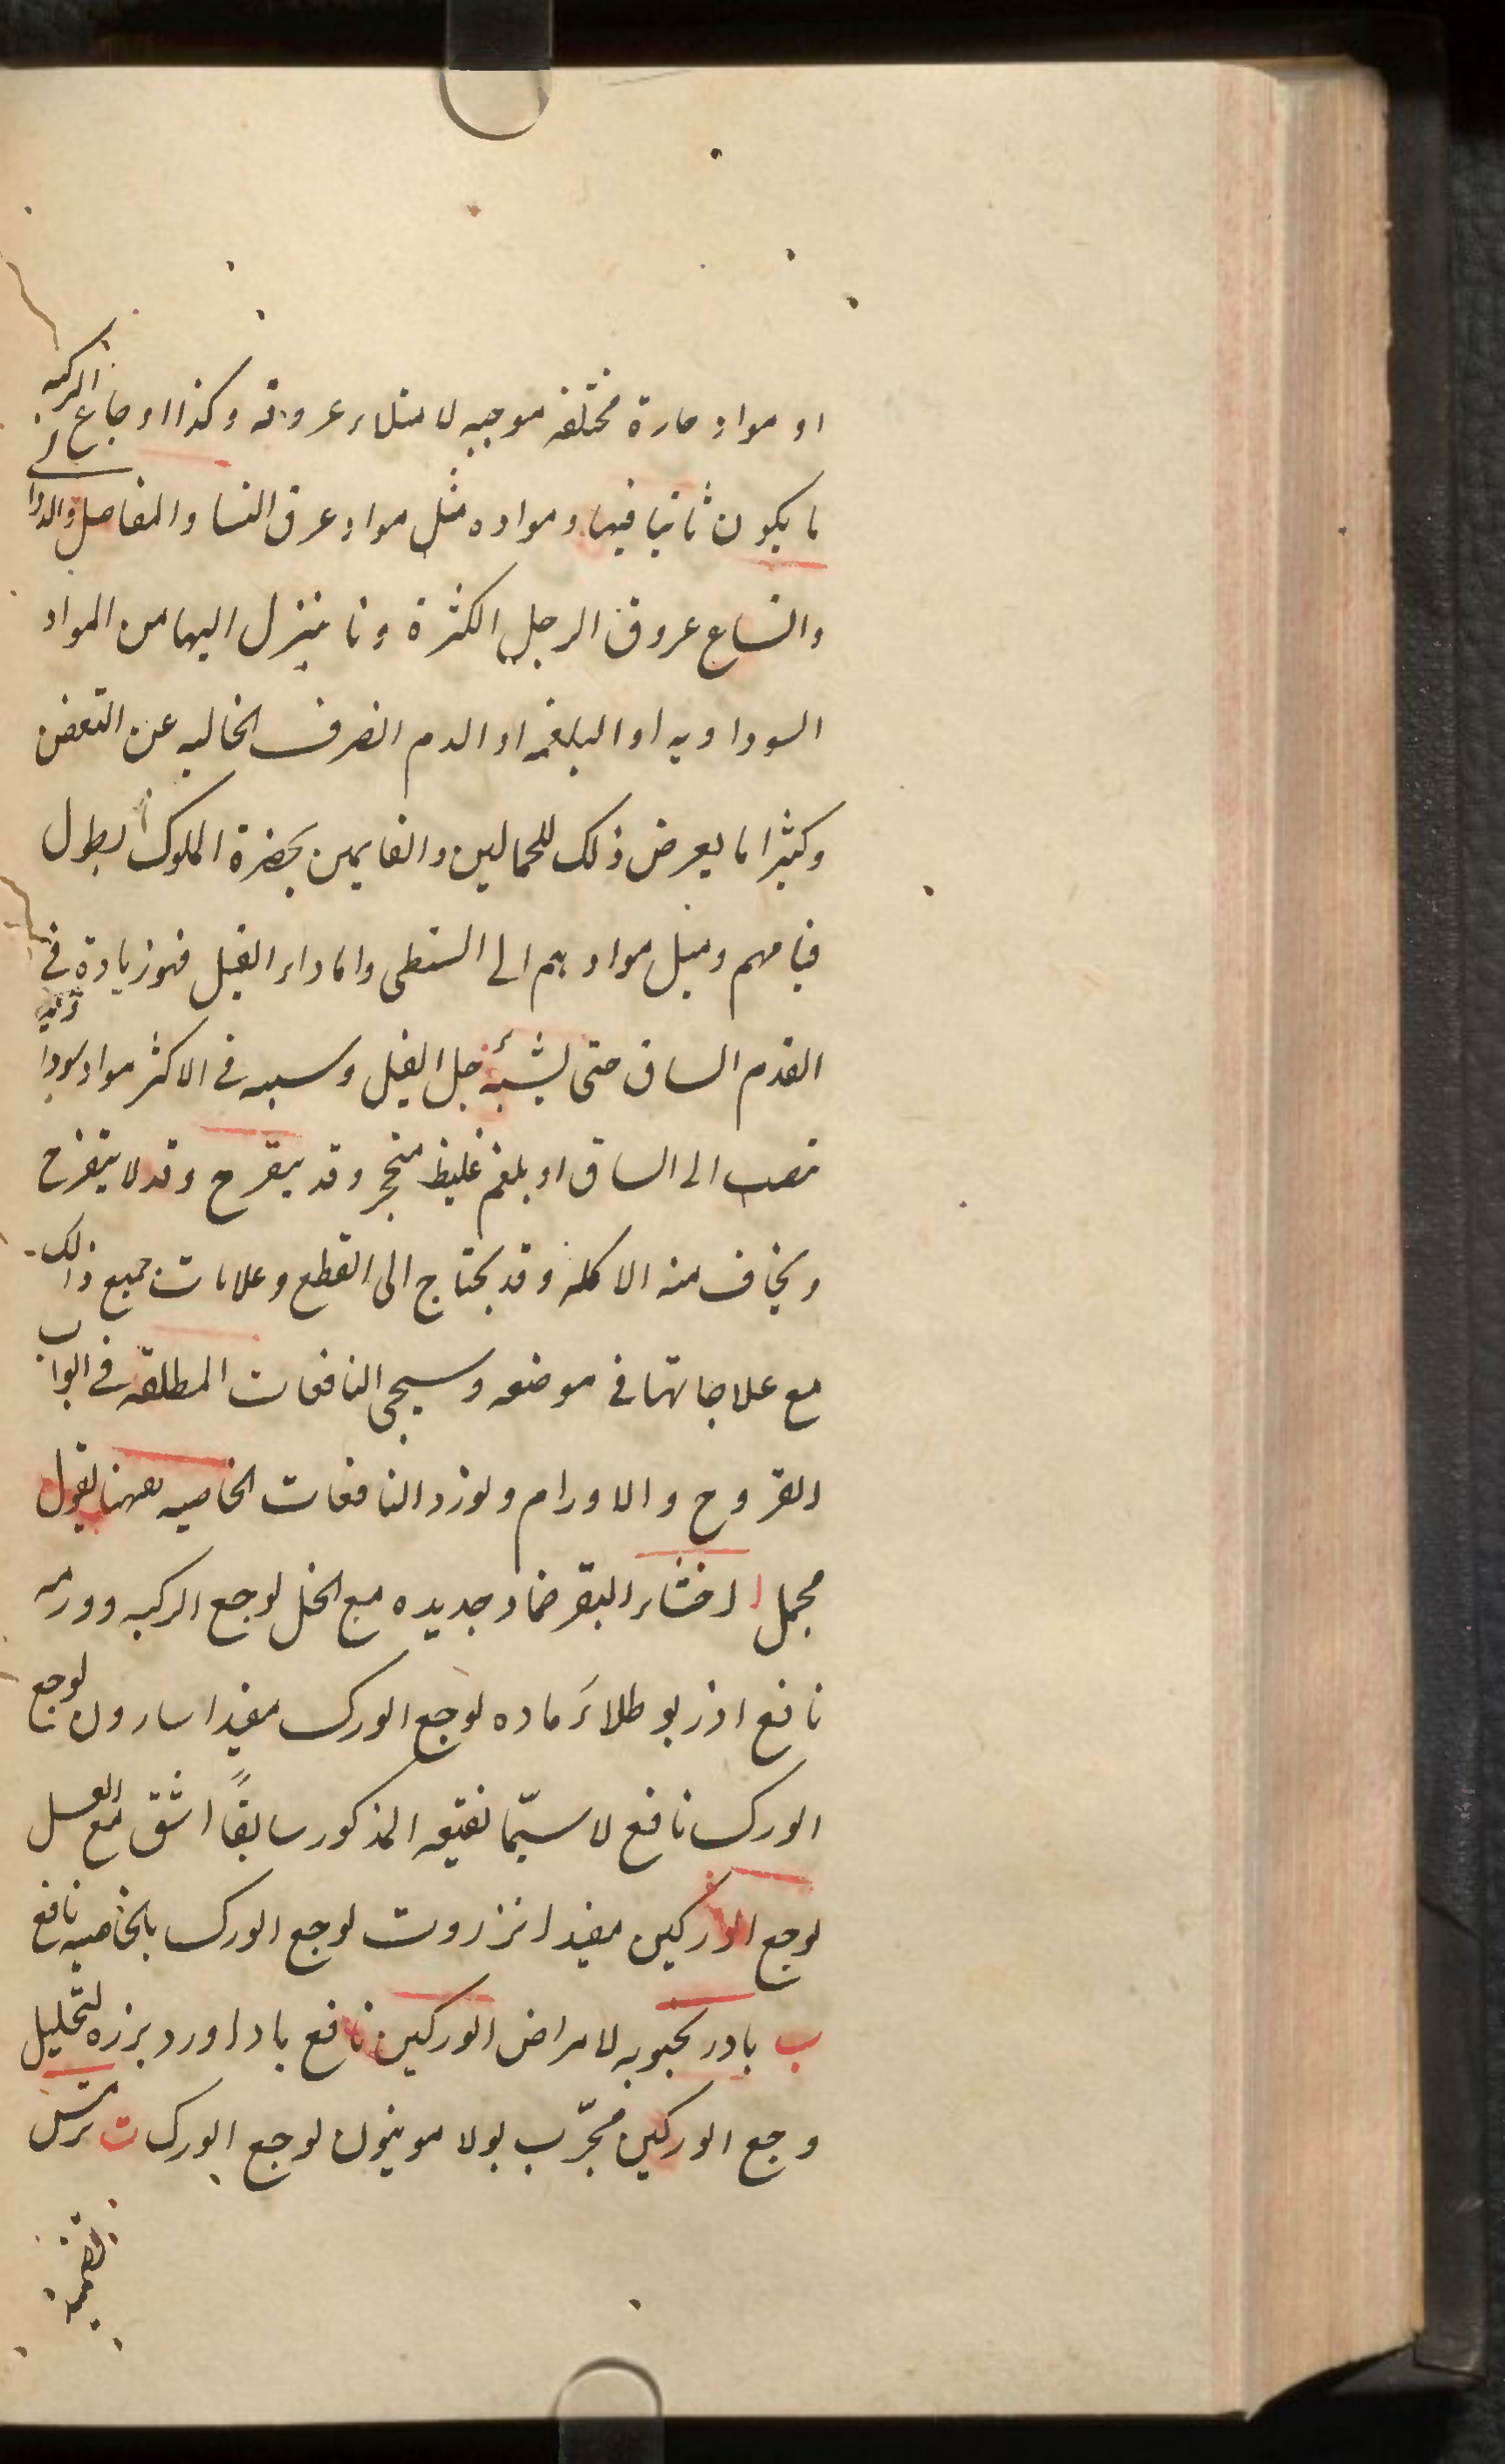 او مواد حارة مختلفه موجبه لامتلاء عروقه وكذا اوجاع الركبه و
ما يكون ثانيا فيها ومواده مثل مواد عرق النسا والمفاصل والدوا
واتساع عروق الرجل الكثرة ما ينزل اليها من المواد
السوداويه او البلغميه او الدم الصرف الخاليه عن التعفن
وكثيرا ما يعرض ذلك للحمالين والقايمين بحضرة الملوك لطول
قيامهم وميل موادهم الى السفلى واما داء الفيل فهو زيادة في
القدم الساق حتى يشبه رجل الفيل وسببه في الاكثر مواد سوداويه
تصب الى الساق او بلغم غليظ متحجر وقد يتقرح وقد لا يتقرح
ويخاف منه الاكله وقد يحتاج الى القطع وعلامات جميع ذالك
مع علاجاتها في موضعه وسيجى النافعات المطلقه في ابواب
القروح والاورام ونورد النافعات الخاصيه ههنا بقول
مجمل ا اخثاء البقر ضماد جديده مع الخل لوجع الركبه وورمه
نافع اذربو طلاء رماده لوجع الورك مفيد اسارون لوجع
الورك نافع لا سيّما نقيعه المذكور سابقًا اشق مع العسل
لوجع الوركين مفيد انزروت لوجع الورك بالخاصيه نافع
ب بادرنجبويه لامراض الوركين نافع باداورد بزره لتحليل
وجع الوركين مجرّب بولامونيون لوجع الورك ت ترمس